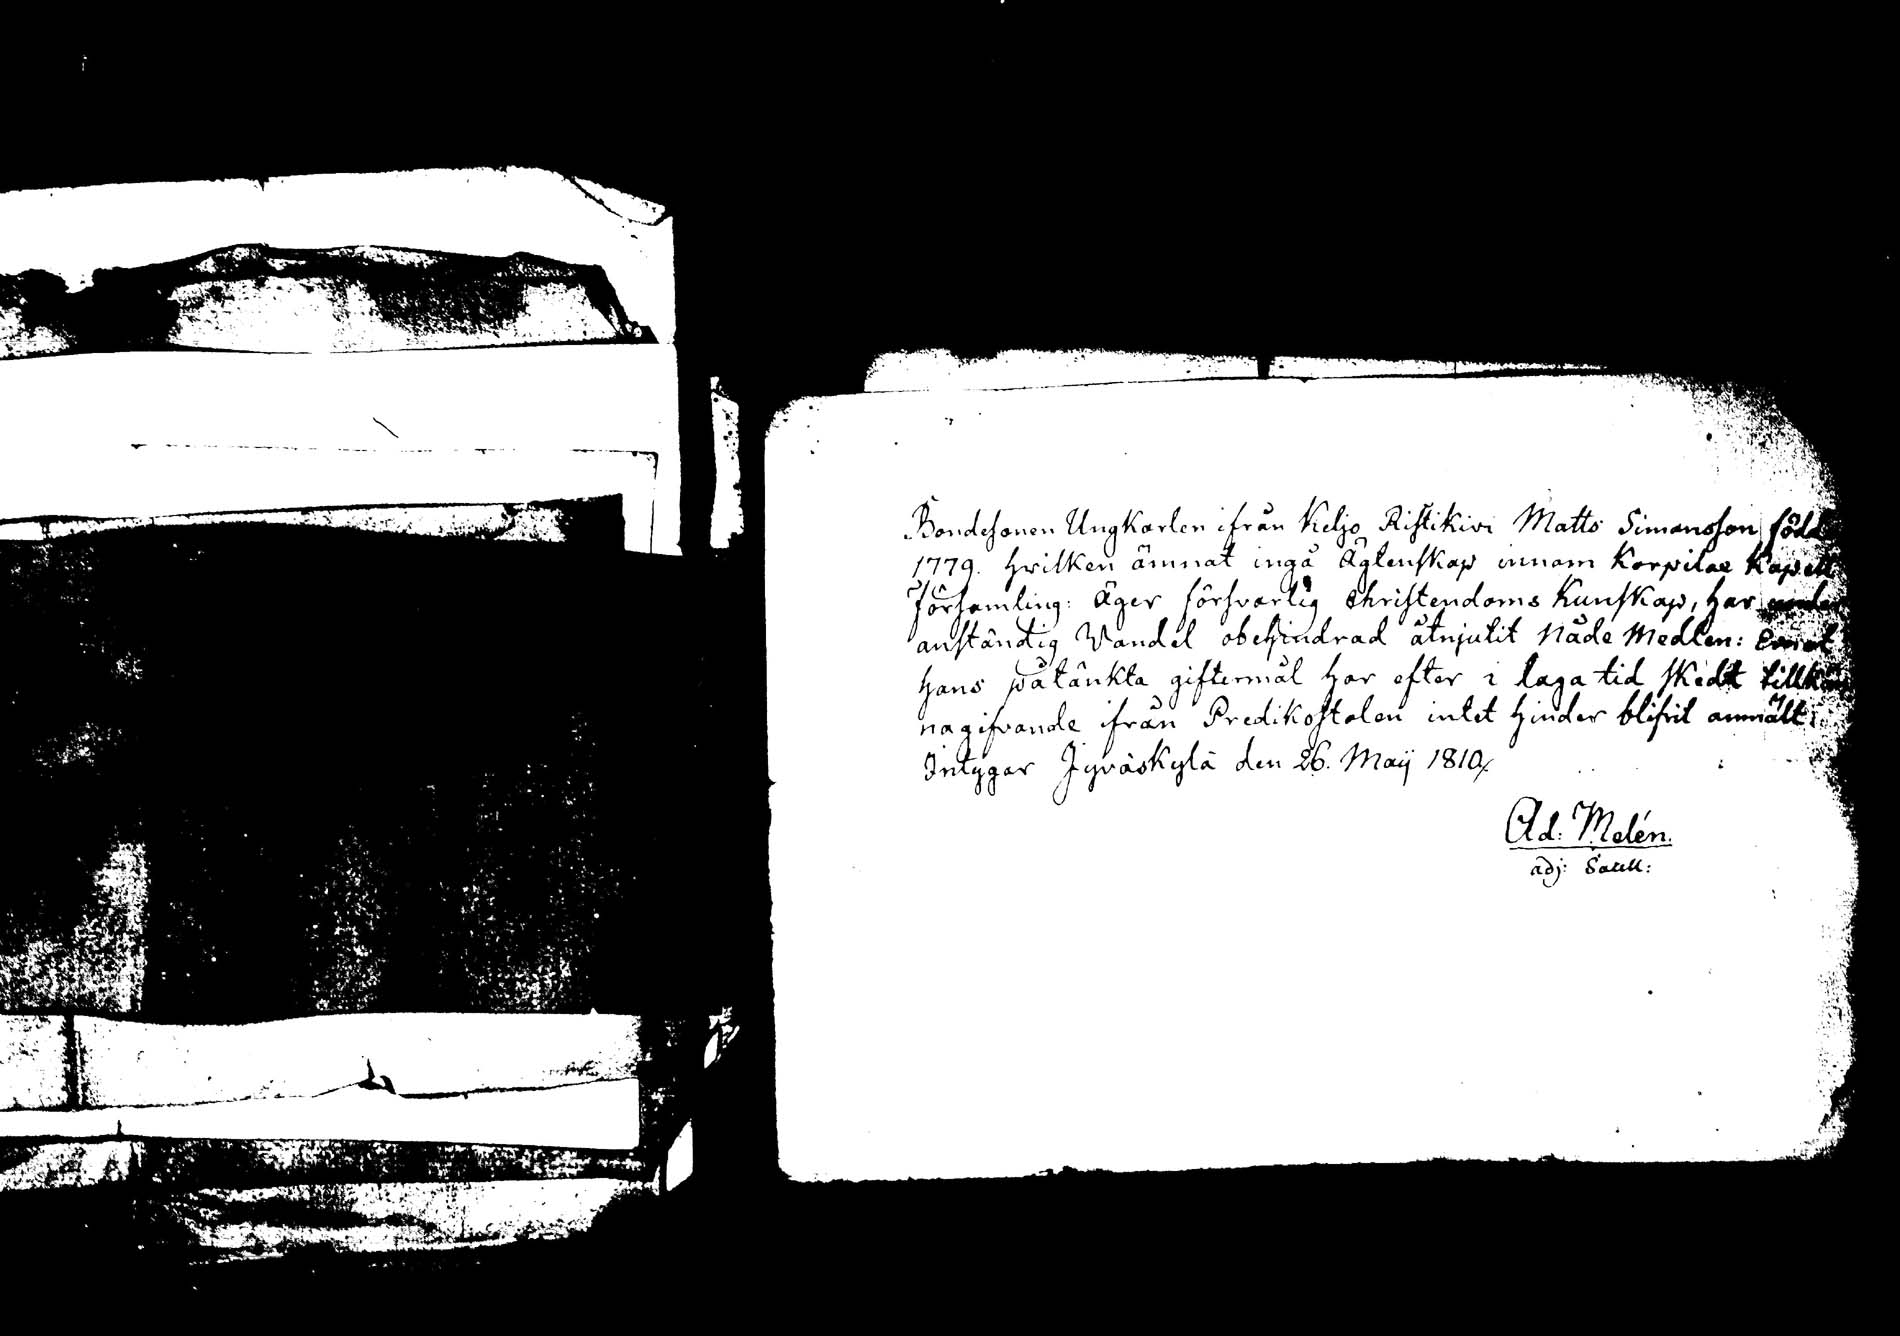 Bondesonen Ungkarlen ifrån Keljo Ristikivi Matts Simonsson född
1779. hvilken ämnat ingå Ägtenskap innom Korpilax Kapell
Församling: Äger försvarlig Christendoms Kunskap, har under
anständig Vandel obehindrad åtnjutit Nåde Medlen: Emot
hans påtänkta giftermål har efter i laga tid skedt tillkän
nagifvande ifrån Predikostolen intet hinder blifvit anmält:
Intygar Jyväskylä den 26. Maij 1810.
Ad: Melén.
adj: Sacell: